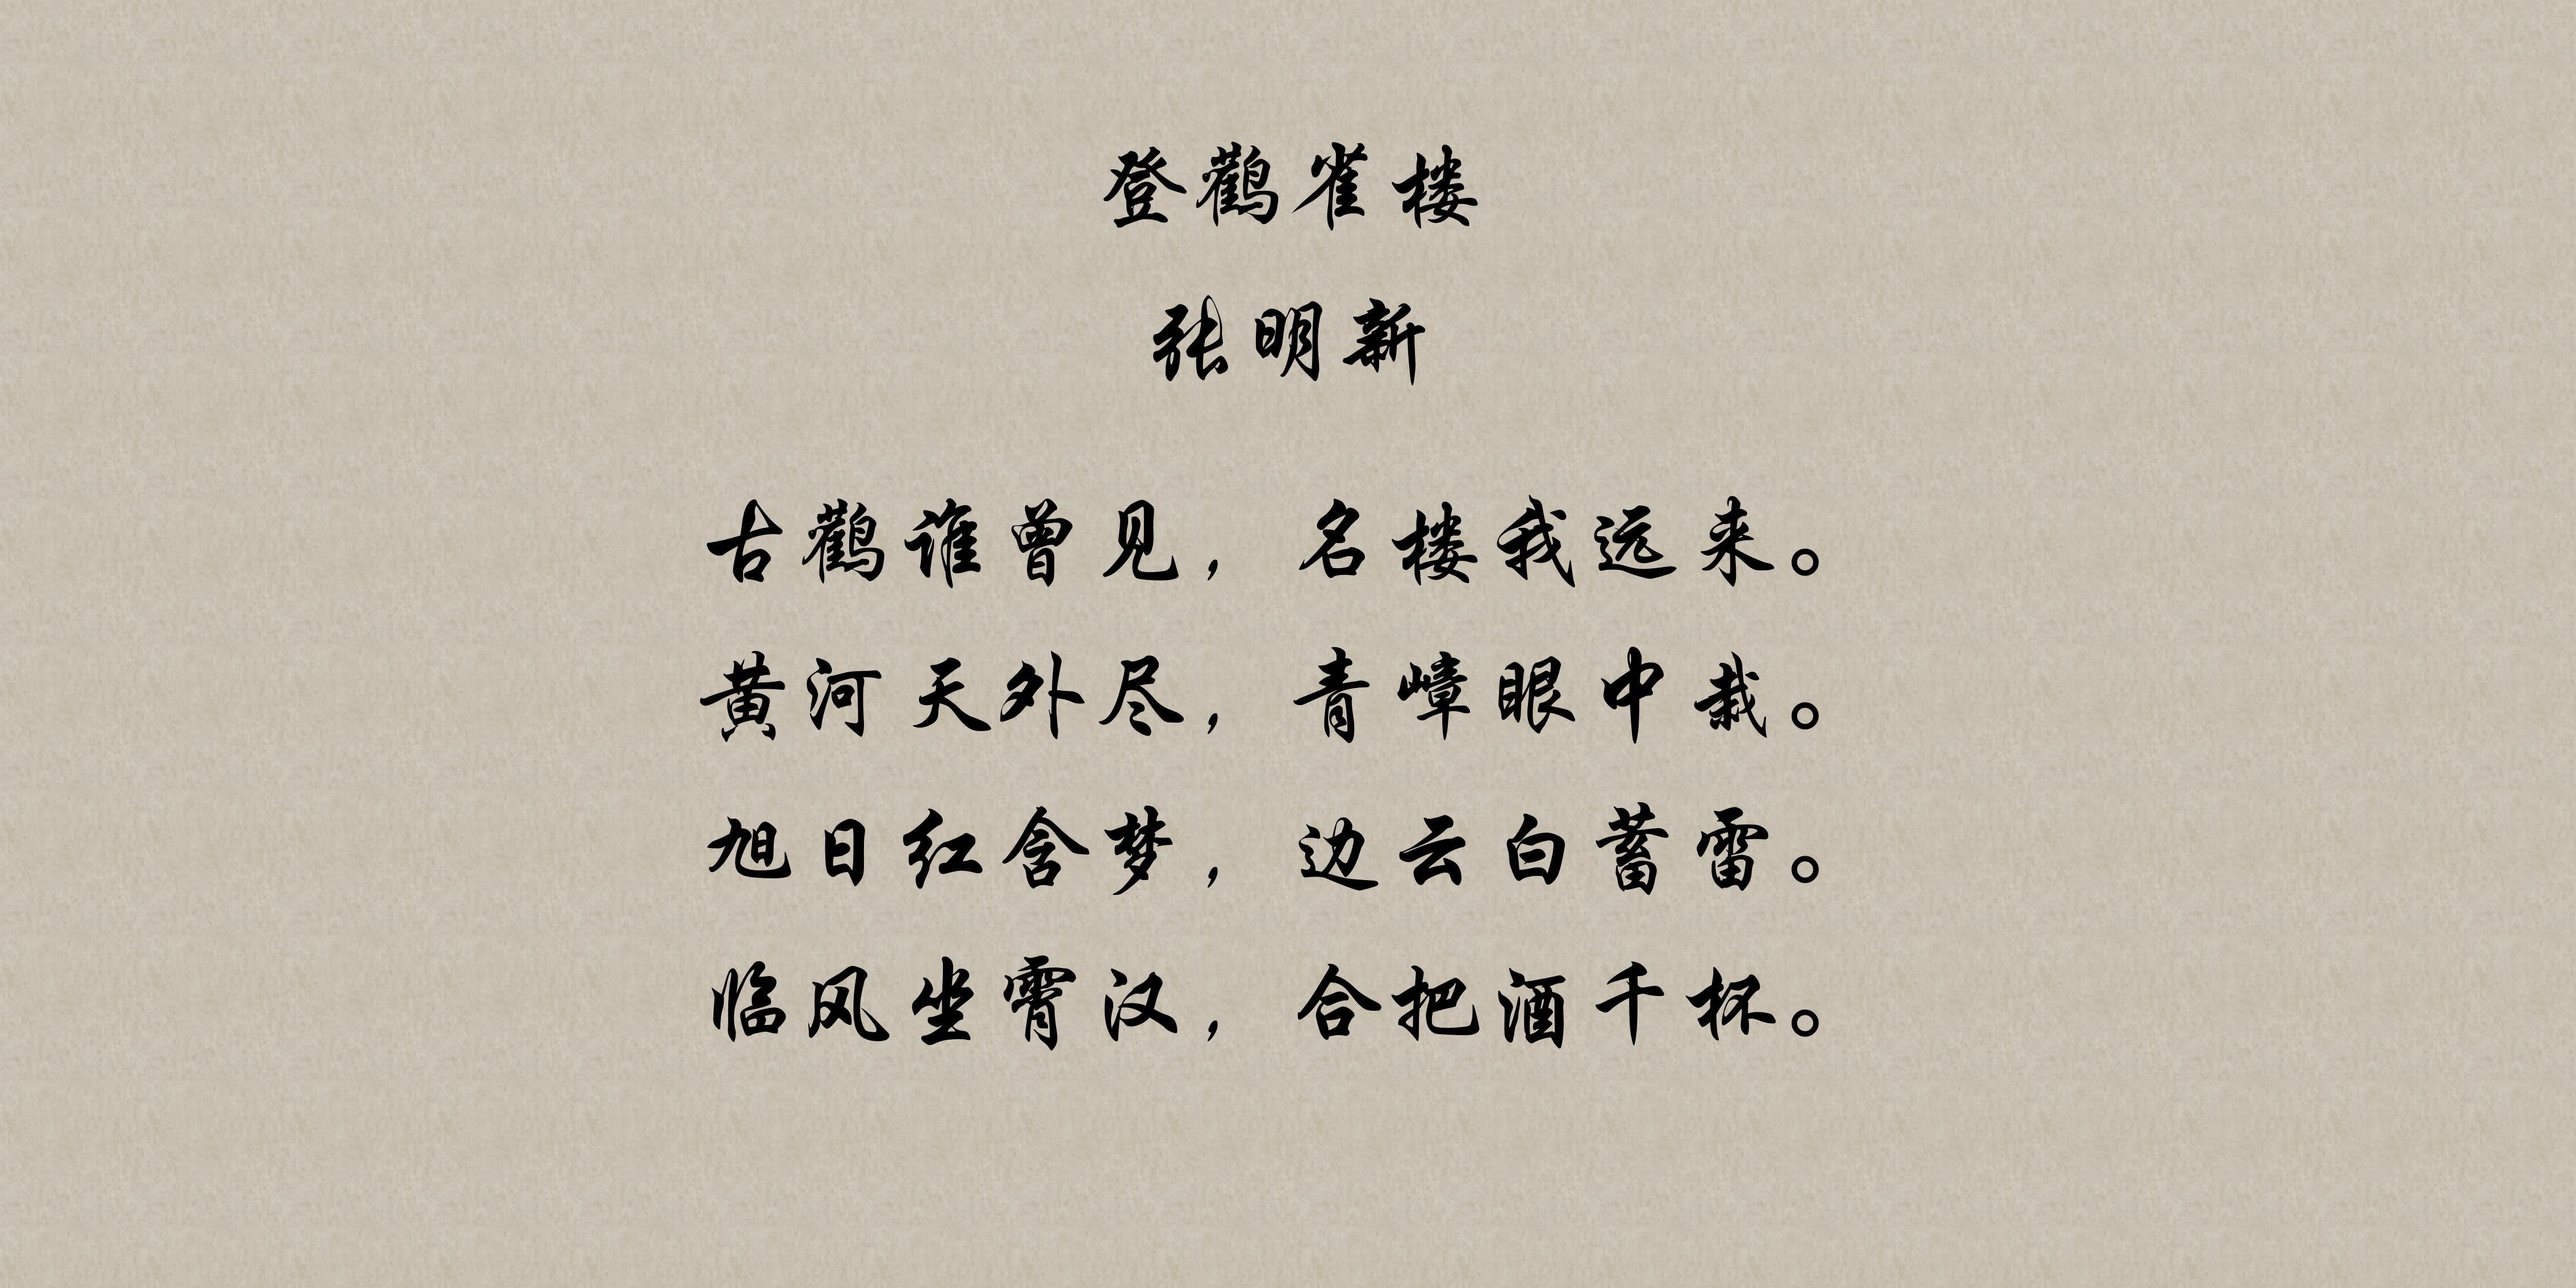 登鹳雀楼
张明新
古鹳谁曾见，名楼我远来。
黄河天外尽，青嶂眼中栽。
旭日红含梦，边云白蓄雷。
临风坐霄汉，合把酒千杯。